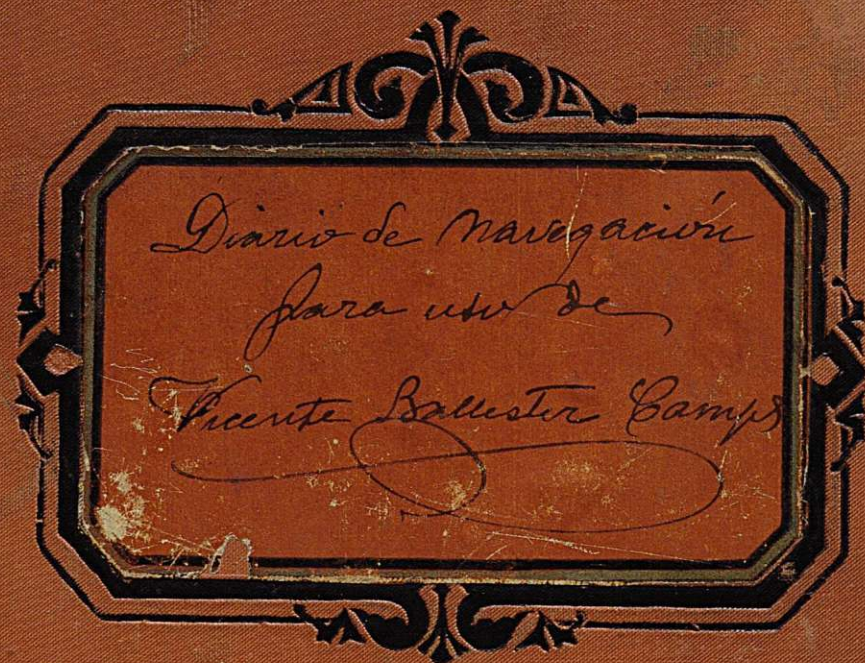 Diario de navegación
para uso de
Vicente Ballester Camps